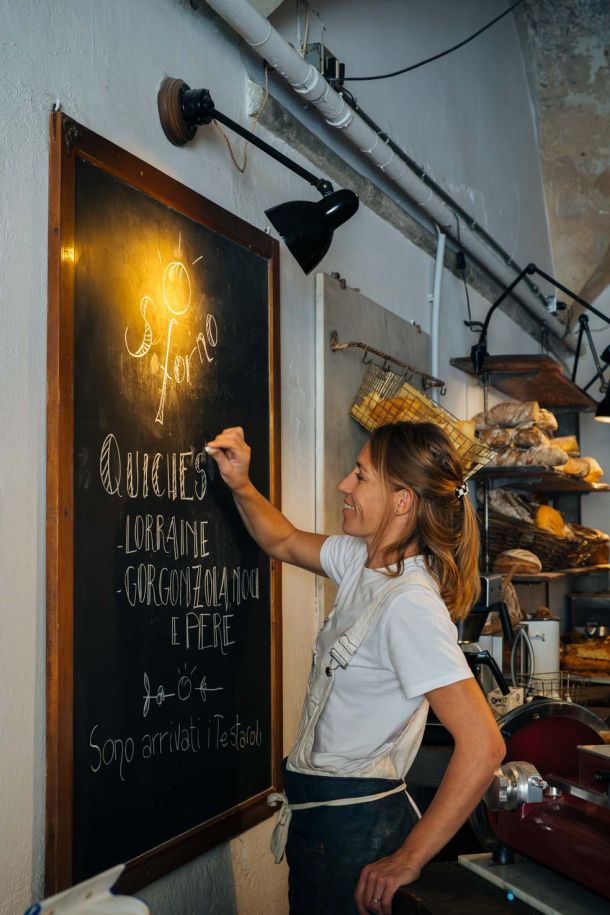 S. forno
QUICHES
-LORRAINE
-GORGONZOLA, NOCI
E PERE
Sono arrivati i Testaroli